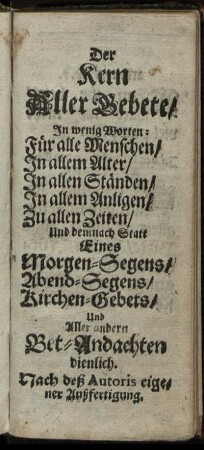 Der
Kern
Aller Gebete/
In wenig Worten:
Für alle Menschen/
In allem Alter/
In allen Ständen/
In allem Anligen/
Zu allen Zeiten/
Und demnach Statt
Eines
Morgen-Segens/
Abend-Segens/
Kirchen-Gebets/
Und
Aller andern
Bet-Andachten
dienlich.
Nach deß Autoris eige-
ner Außfertigung.